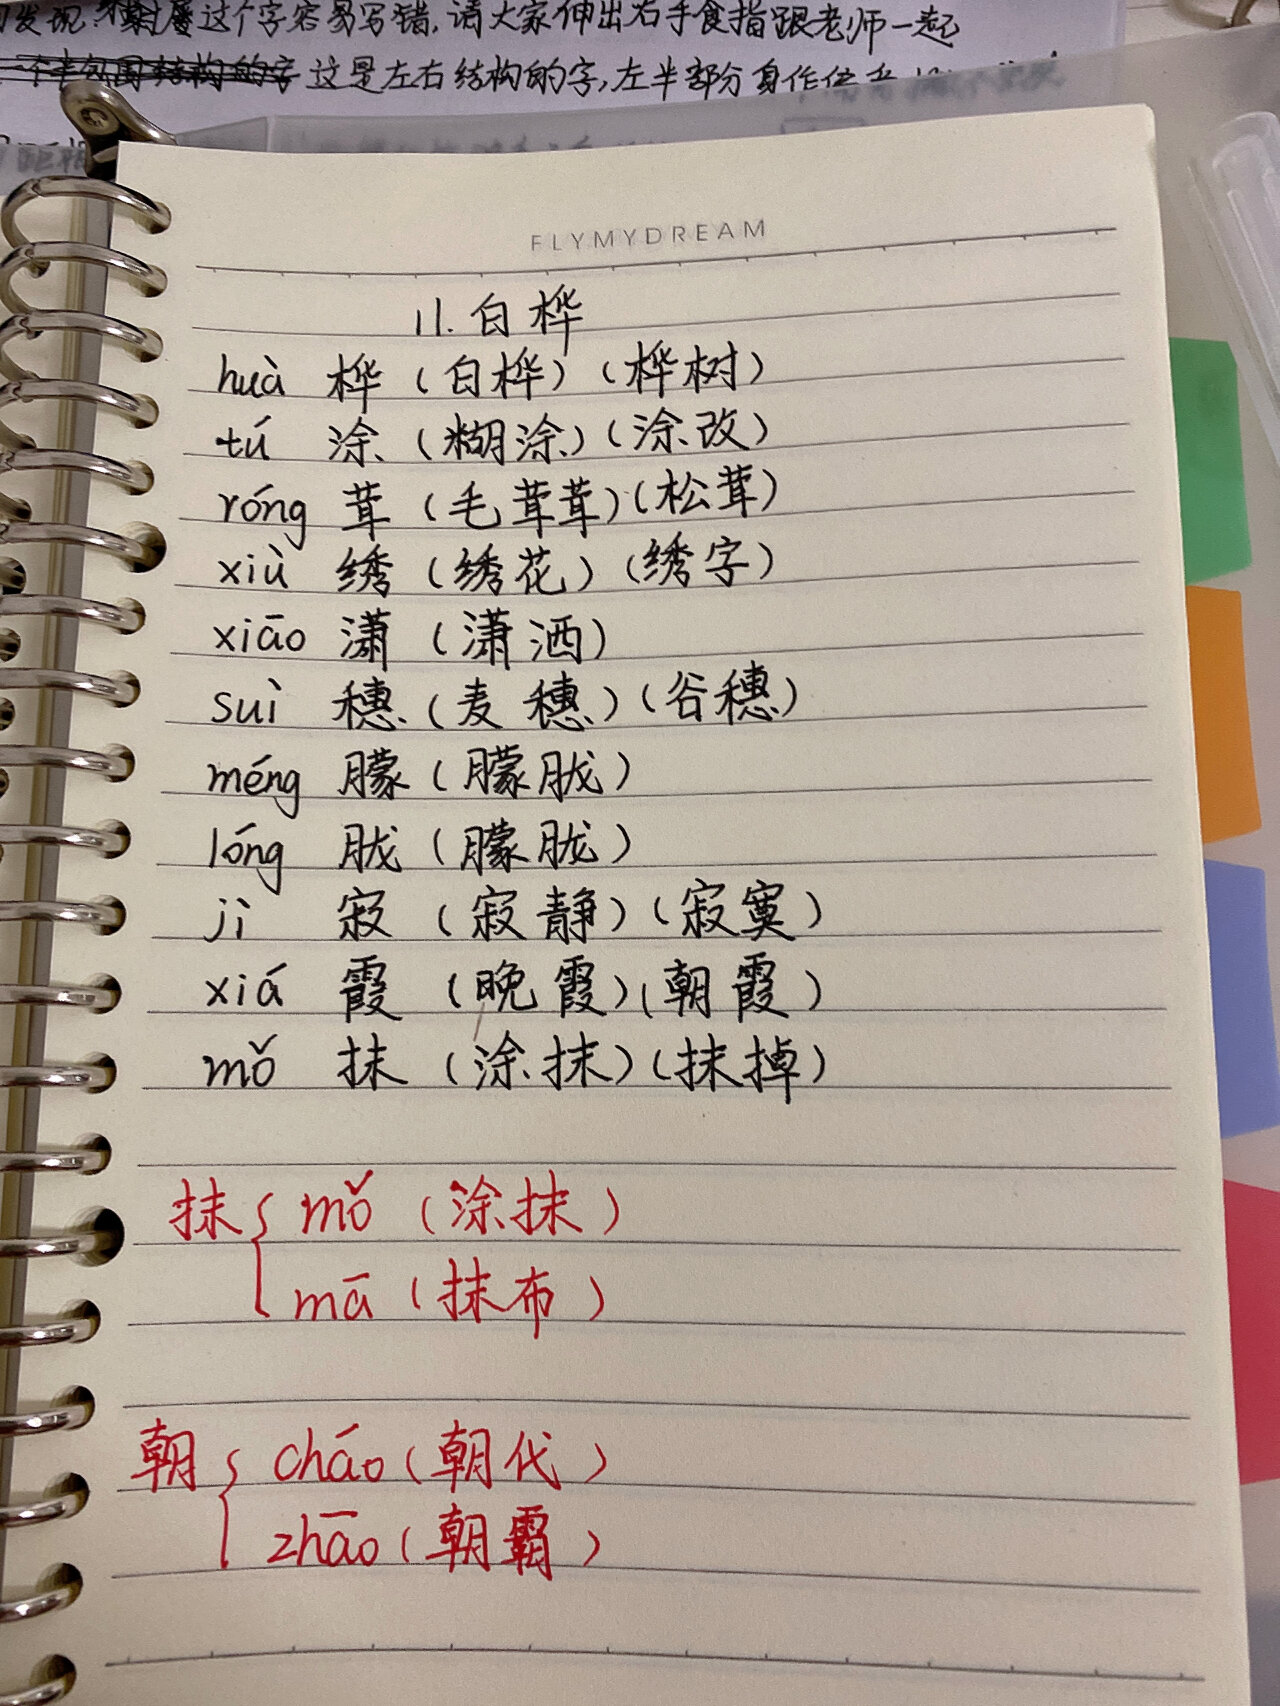 发现"射"这个字容易写错,请大家伸出右手食指跟老师一起
一个半包围结构的字这是左右结构的字,左半部分身作偏旁
FLYMYDREAM
11.白桦
huà 桦(白桦)(桦树)
tú 涂(糊涂)(涂改)
róng 茸(毛茸茸)(松茸)
xiù 绣(绣花)(绣字)
xiāo 潇(潇洒)
suì 穗(麦穗)(谷穗)
méng 朦(朦胧)
lóng 胧(朦胧)
jì 寂(寂静)(寂寞)
xiá 霞(晚霞)(朝霞)
mǒ 抹(涂抹)(抹掉)
抹{mǒ(涂抹)
mā(抹布)
朝{cháo(朝代)
zhāo(朝霸)